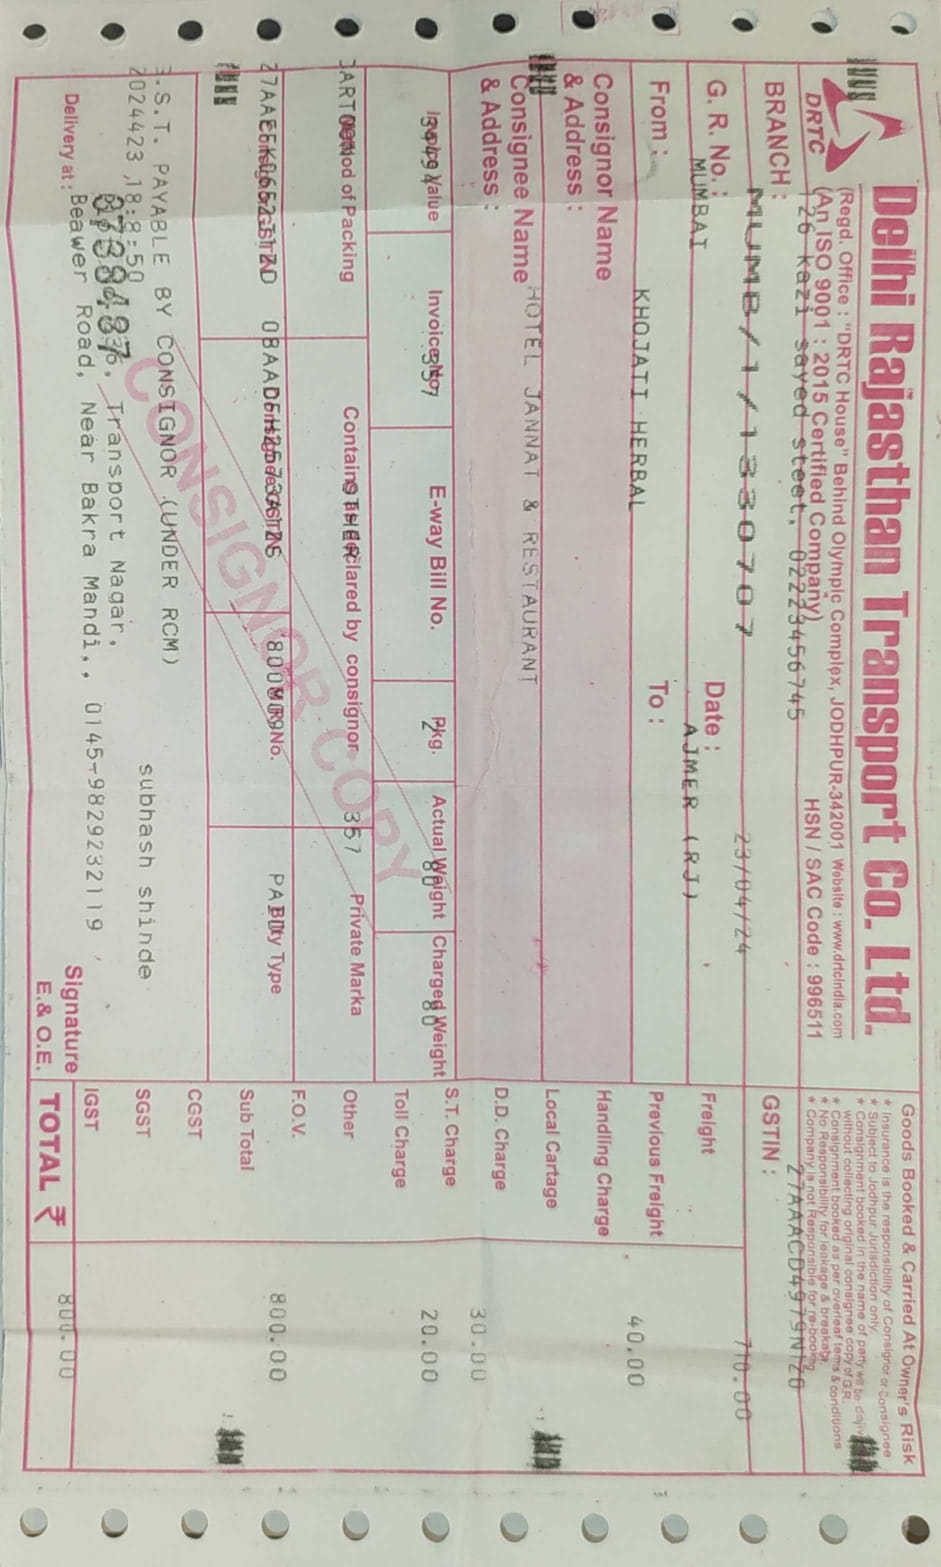 Delhi Rajasthan Transport Co. Ltd.
DRTC
(Regd. Office : "DRTC House" Behind Olympic Complex, JODHPUR-342001 Website : www.drtcindia.com
(An ISO 9001 : 2015 Certified Company)
HSN / SAC Code : 996511
BRANCH :
126 kazi sayed steet. 02223456745
G. R. No. :
MUMB/1/1330707
Date :
23/04/24
From :
MUMBAI
To :
AJMER (RJ)
Consignor Name
& Address :
KHOJATI HERBAL
Consignee Name
& Address :
HOTEL JANNAT & RESTAURANT
Invoice Value
Invoice No.
357
E-way Bill No.
Pkg.
2
Actual Weight
80
Charged Weight
80
Method of Packing
Contains as declared by consignor
OTHER
Private Marka
357
M.R. No.
Bty Type
PAID
CONSIGNOR COPY
G.S.T. PAYABLE BY CONSIGNOR (UNDER RCM)
2024423 ,18:8:50
subhash shinde
0738487
Delivery at :
Transport Nagar,
Beawer Road, Near Bakra Mandi,, 0145-9829232119 ,
Signature
E. & O.E.
Goods Booked & Carried At Owner's Risk
* Insurance is the responsibility of Consignor or Consignee
* Subject to Jodhpur Jurisdiction only.
* Consignment booked in the name of party will be
without collecting original consignee copy of G.R.
* Consignment booked as per overleaf terms & conditions
* No Responsibility for leakage & breakage.
* Company is not Responsible for re-booking
GSTIN :
27AAACD4979N1Z0
Freight 710.00
Previous Freight
Handling Charge 40.00
Local Cartage
D.D. Charge
S.T. Charge 30.00
Toll Charge 20.00
Other
F.O.V.
Sub Total 800.00
CGST
SGST
IGST
TOTAL ₹ 800.00